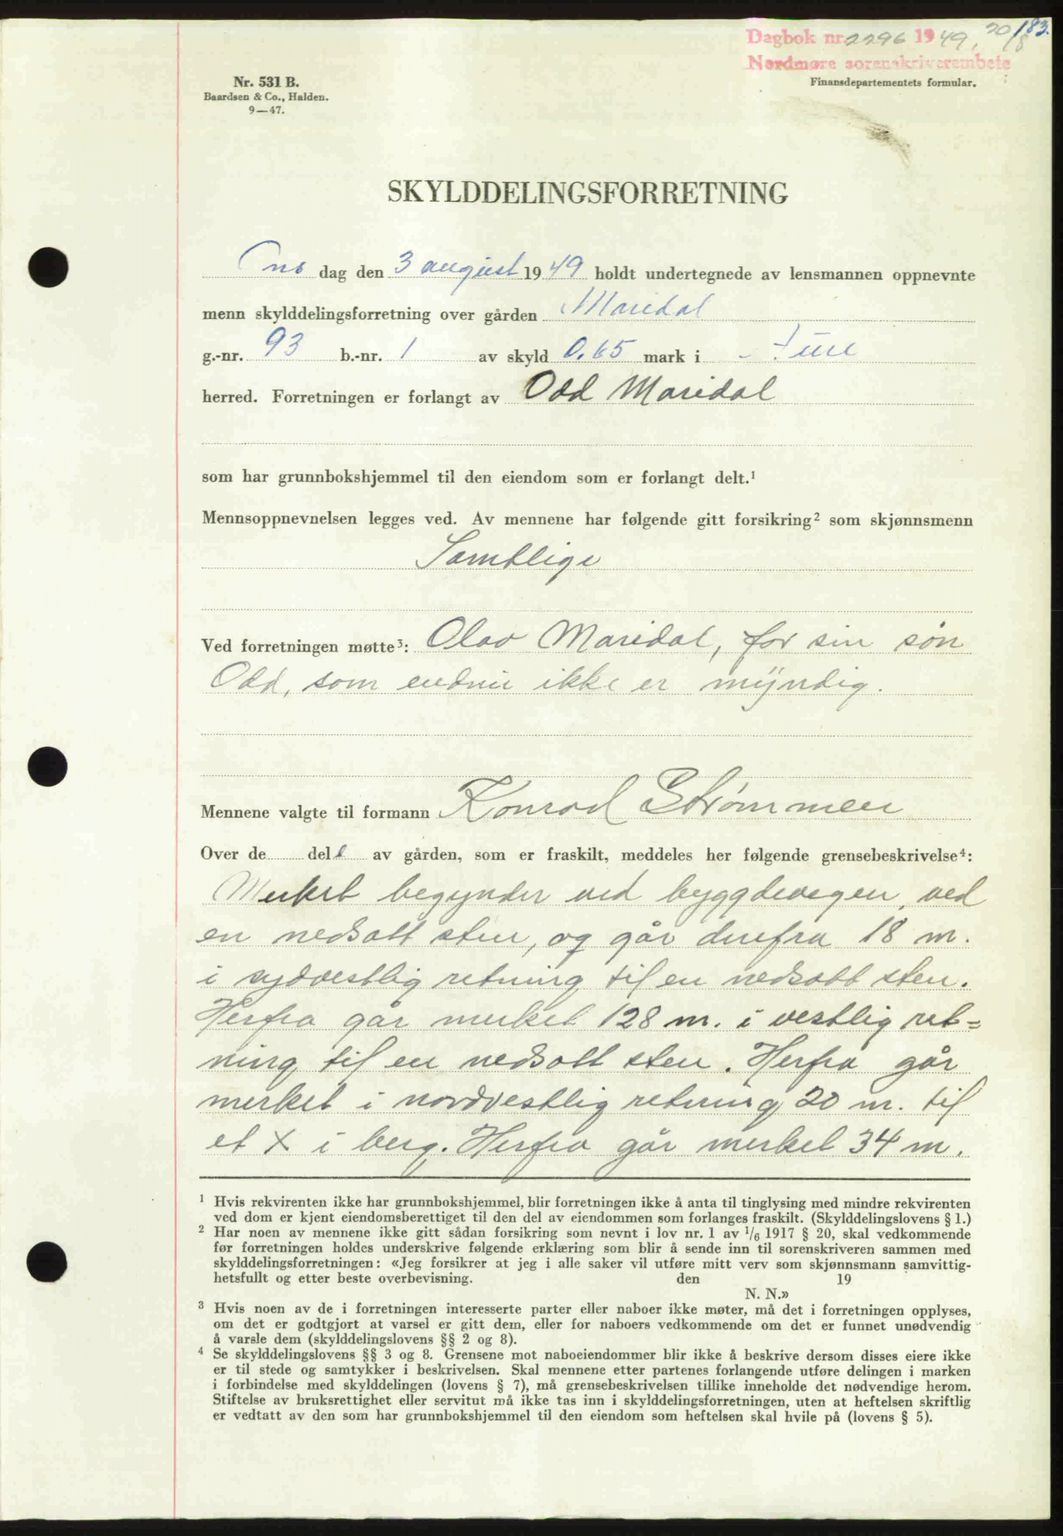 183.
Dagbok nr. 2296 1949, 20/8
Nordmøre sorenskriverembete
Nr. 531 B.
Baardsen & Co., Halden.
9—47.
Finansdepartementets formular.
SKYLDDELINGSFORRETNING
Ons dag den 3 august 1949 holdt undertegnede av lensmannen oppnevnte
menn skylddelingsforretning over gården Maridal
g.-nr. 93 b.-nr. 1 av skyld 0.65 mark i
herred. Forretningen er forlangt av Odd Maridal
som har grunnbokshjemmel til den eiendom som er forlangt delt.¹
Mennsoppnevnelsen legges ved. Av mennene har følgende gitt forsikring² som skjønnsmenn
Samtlige
Ved forretningen møtte³: Olav Maridal, for sin søn
Odd, som endnu ikke er myndig.
Mennene valgte til formann Konrad Strømmen
Over de del av gården, som er fraskilt, meddeles her følgende grensebeskrivelse⁴:
Merket begynder ved byggdevegen, ved
en nedsatt sten, og går derfra 18 m.
i sydvestlig retning til en nedsatt sten.
Herfra går merket 128 m. i vestlig ret=
ning til en nedsatt sten. Herfra går
merket i nordvestlig retning 20 m. til
et X i berg. Herfra går merket 34 m.
¹ Hvis rekvirenten ikke har grunnbokshjemmel, blir forretningen ikke å anta til tinglysing med mindre rekvirenten
ved dom er kjent eiendomsberettiget til den del av eiendommen som forlanges fraskilt. (Skylddelingslovens § 1.)
² Har noen av mennene ikke gitt sådan forsikring som nevnt i lov nr. 1 av 1/6 1917 § 20, skal vedkommende
før forretningen holdes underskrive følgende erklæring som blir å sende inn til sorenskriveren sammen med
skylddelingsforretningen: «Jeg forsikrer at jeg i alle saker vil utføre mitt verv som skjønnsmann samvittig-
hetsfullt og etter beste overbevisning. den 19
N. N.»
³ Hvis noen av de i forretningen interesserte parter eller naboer ikke møter, må det i forretningen opplyses,
om det er godtgjort at varsel er gitt dem, eller for naboers vedkommende om det er funnet unødvendig
å varsle dem (skylddelingslovens §§ 2 og 8).
⁴ Se skylddelingslovens §§ 3 og 8. Grensene mot naboeiendommer blir ikke å beskrive dersom disses eiere ikke
er til stede og samtykker i beskrivelsen. Skal mennene etter partenes forlangende utføre delingen i marken
i forbindelse med skylddelingen (lovens § 7), må grensebeskrivelsen tillike inneholde det nødvendige herom.
Stiftelse av bruksrettighet eller servitut må ikke tas inn i skylddelingsforretningen, uten at heftelsen skriftlig
er vedtatt av den som har grunnbokshjemmel til den eiendom som heftelsen skal hvile på (lovens § 5).